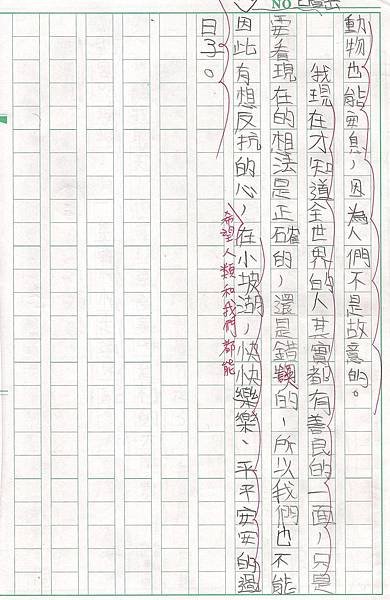 NO
動物也能安息，因為人們不是故意的。
我現在才知道全世界的人其實都有善良的一面，只是
要看現在的想法是正確的，還是錯誤的，所以我們也不能
因此有想反抗的心，在小坡湖，快快樂樂、平平安安的過
希望人類和我們都能
日子。